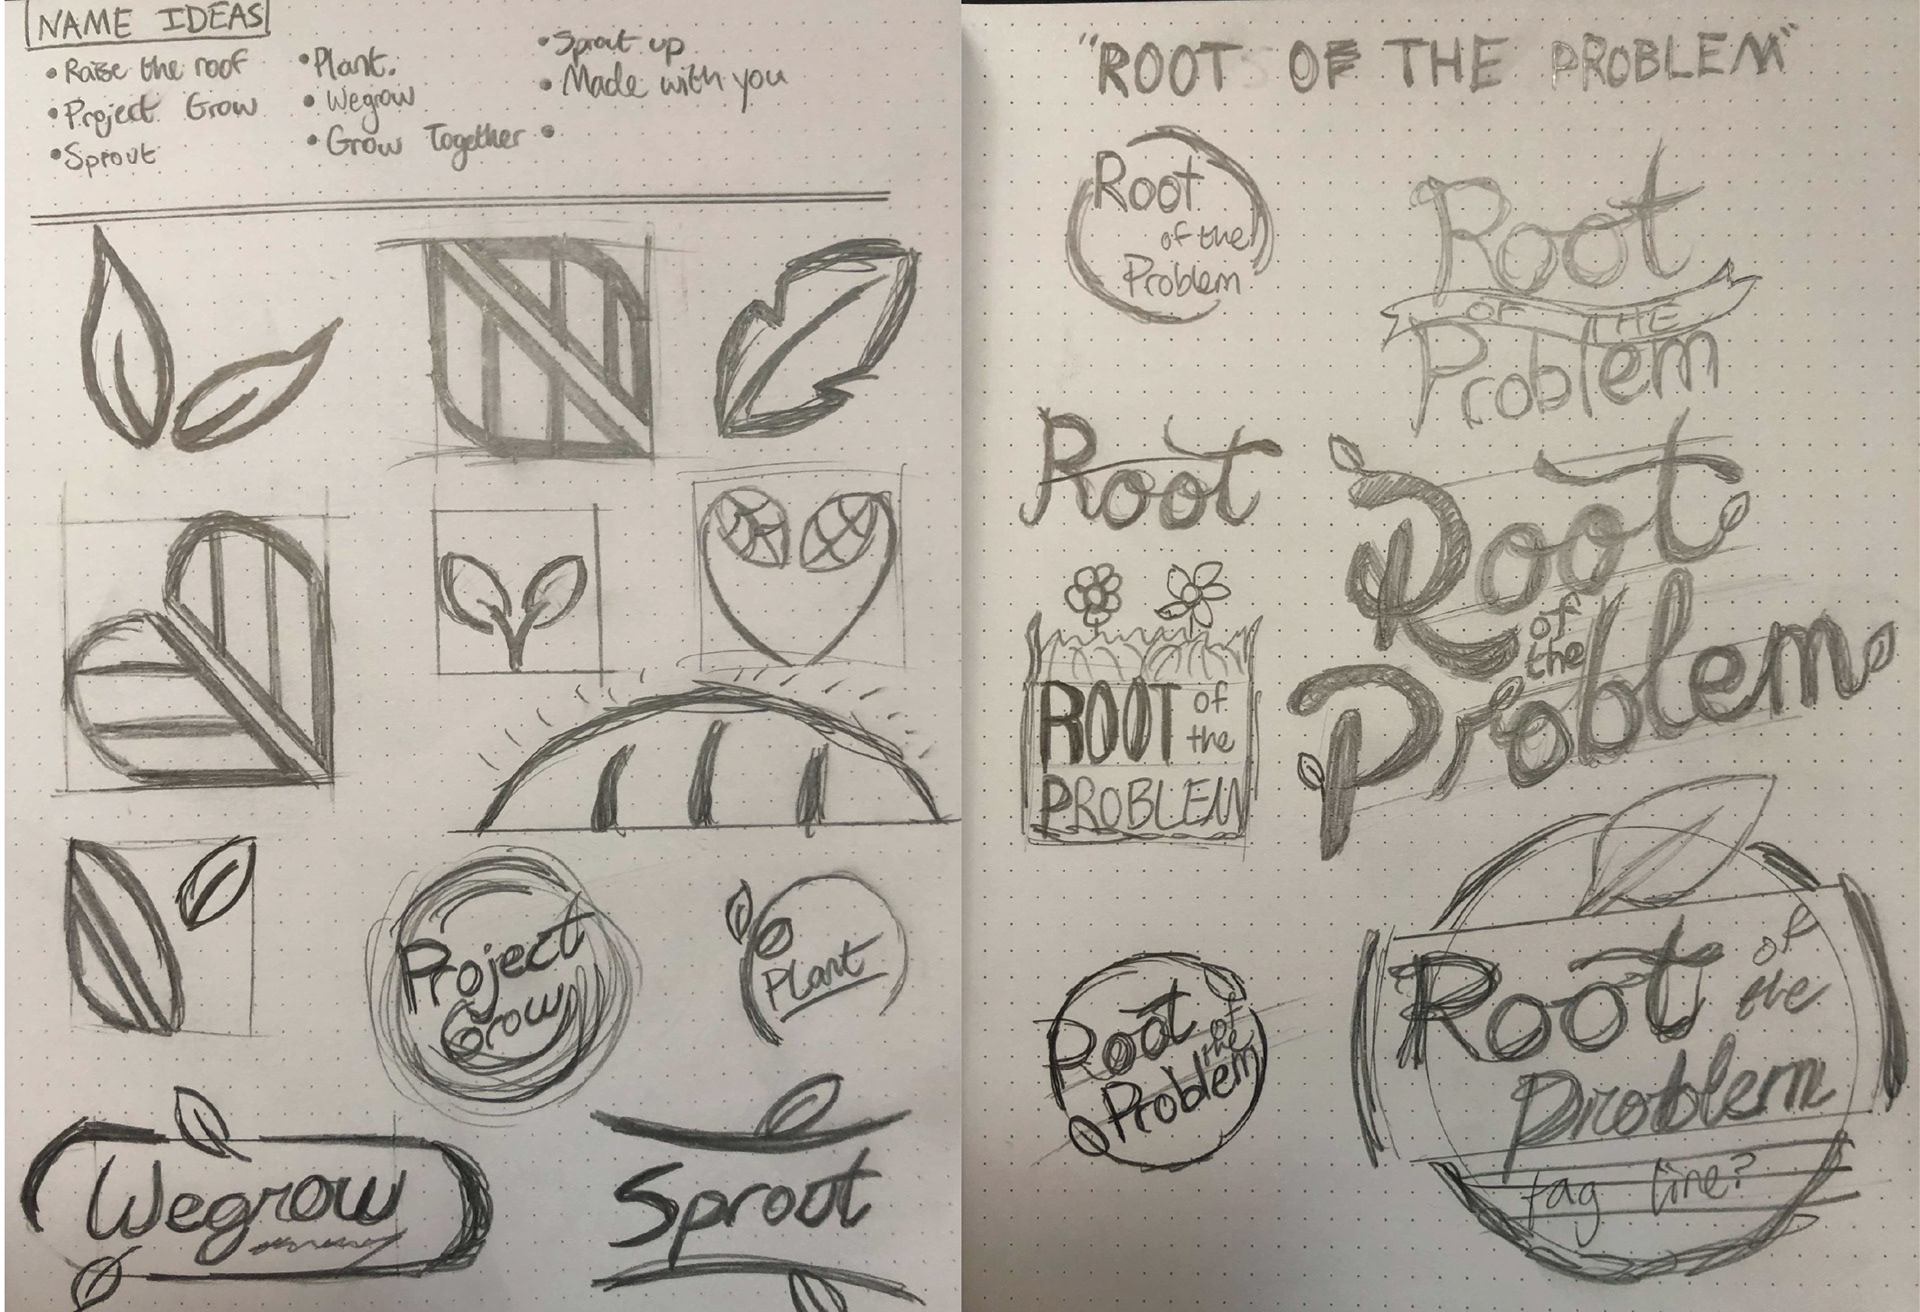 NAME IDEAS
• Raise the roof
• Project Grow
• Sprout
• Plant.
• Wegrow
• Grow Together •
• Sprout up
• Made with you
Project
Grow
Plant
Wegrow
Sprout
"ROOTS OF THE PROBLEM"
Root
of the
Problem
Root
OF THE
Problem
Root
Root
of
the
Problem
ROOT of
the
PROBLEM
Root of
the
Problem
Root of
the
Problem
tag line?